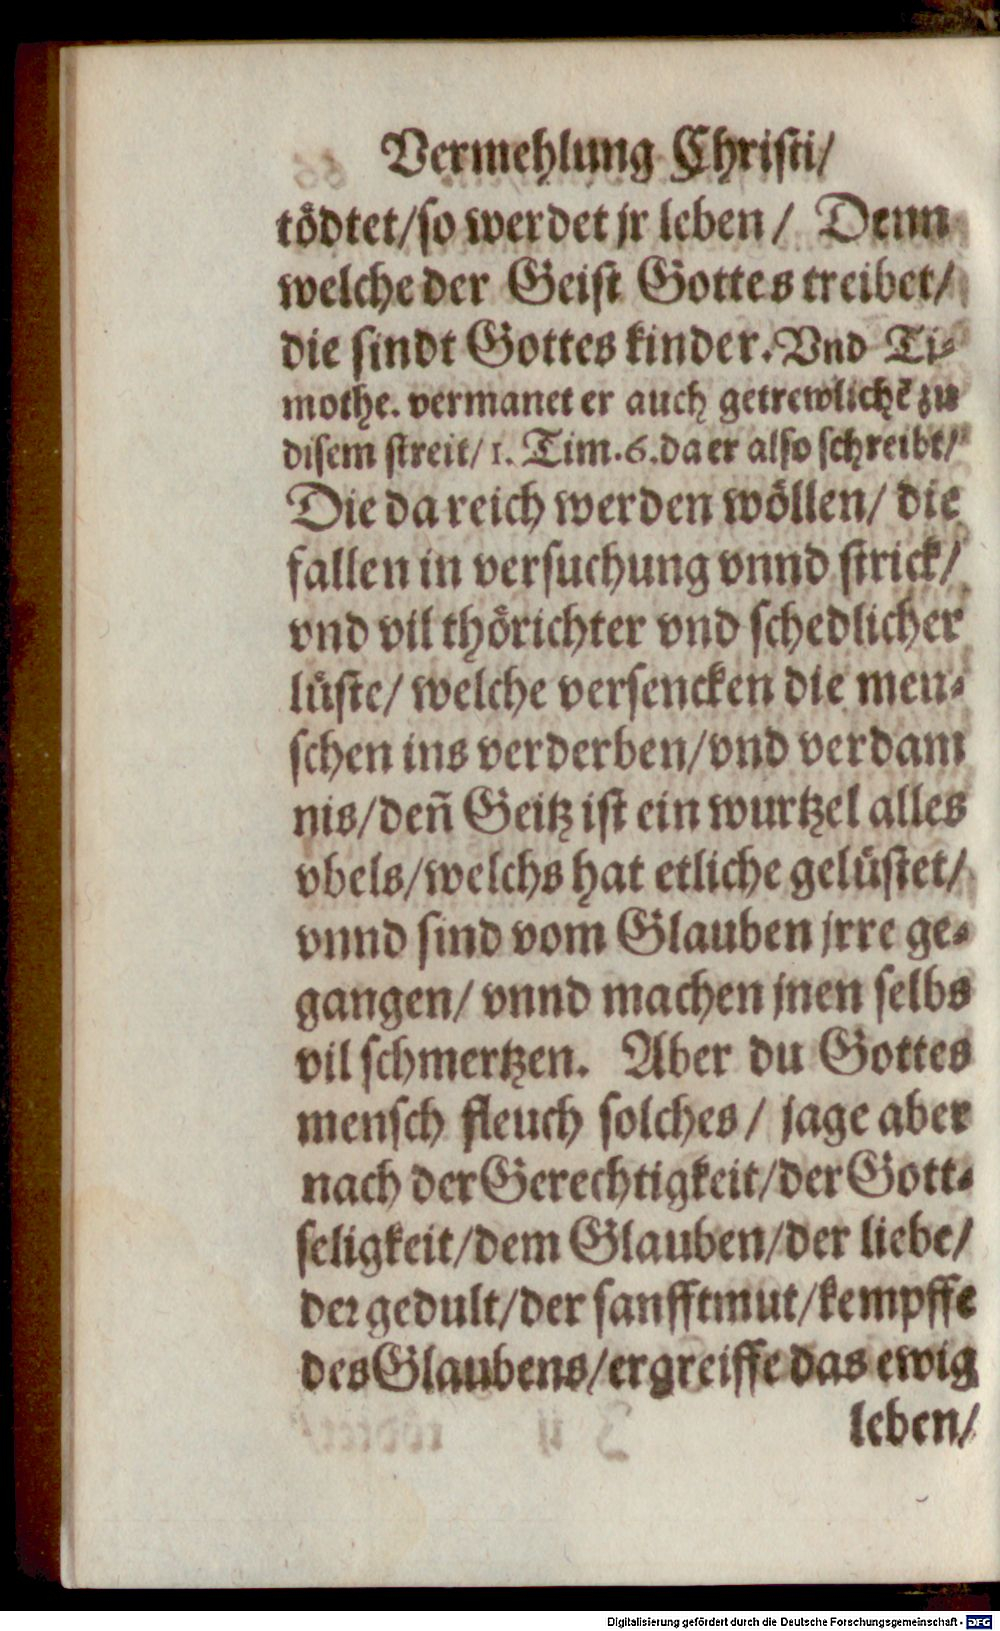 Vermehlung Christi/
tödtet/so werdet jr leben/ Denn
welche der Geist Gottes treibet/
die sindt Gottes kinder. Vnd Ti-
mothe. vermanet er auch getrewlichē zu
disem streit/ 1. Tim. 6. da er also schreibt/
Die da reich werden wöllen/ die
fallen in versuchung vnnd strick/
vnd vil thörichter vnd schedlicher
lüste/ welche versencken die men-
schen ins verderben/vnd verdam
nis/deñ Geitz ist ein wurtzel alles
vbels/welchs hat etliche gelüstet/
vnnd sind vom Glauben jrre ge-
gangen/ vnnd machen jnen selbs
vil schmertzen. Aber du Gottes
mensch fleuch solches/ jage aber
nach der Gerechtigkeit/der Gott-
seligkeit/dem Glauben/der liebe/
der gedult/der sanfftmut/kempffe
des Glaubens/ergreiffe das ewig
leben/
Digitalisierung gefördert durch die Deutsche Forschungsgemeinschaft - DFG